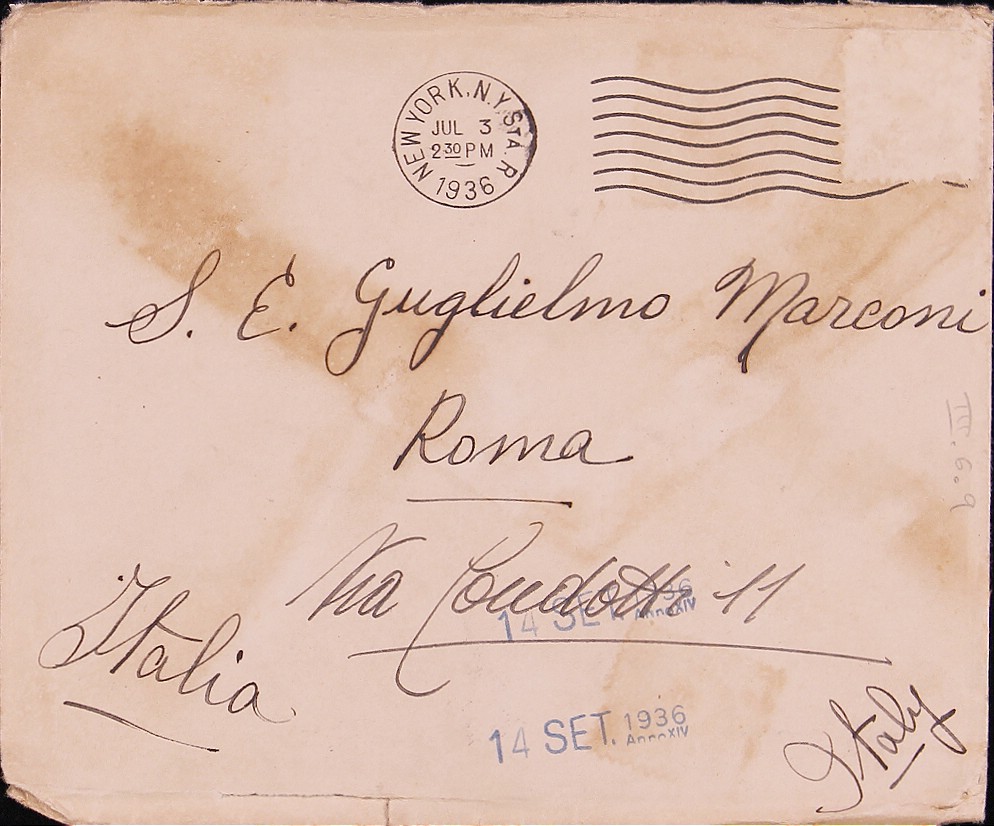 NEW YORK, N.Y. STA. R
JUL 3
2 30 PM
1936
S. E. Guglielmo Marconi
Roma
Via Condotti 11
14 SET. 1936
Anno XIV
Italia
14 SET. 1936
Anno XIV
Italy
III. 6. 9